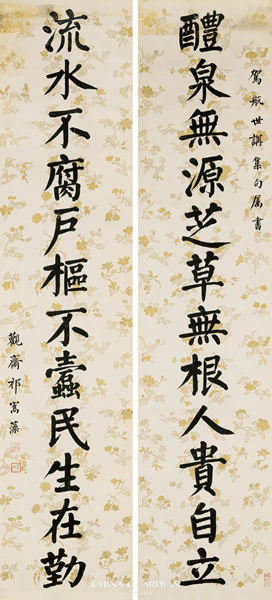 駕航世講集句属書
醴泉無源芝草無根人貴自立
流水不腐戶樞不蠹民生在勤
觀齋祁寯藻
CHINA GUARDIAN